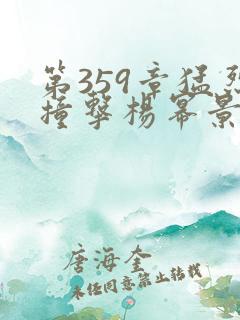 第359章猛烈
撞擊楊冪景
唐海奎
未经同意禁止转载